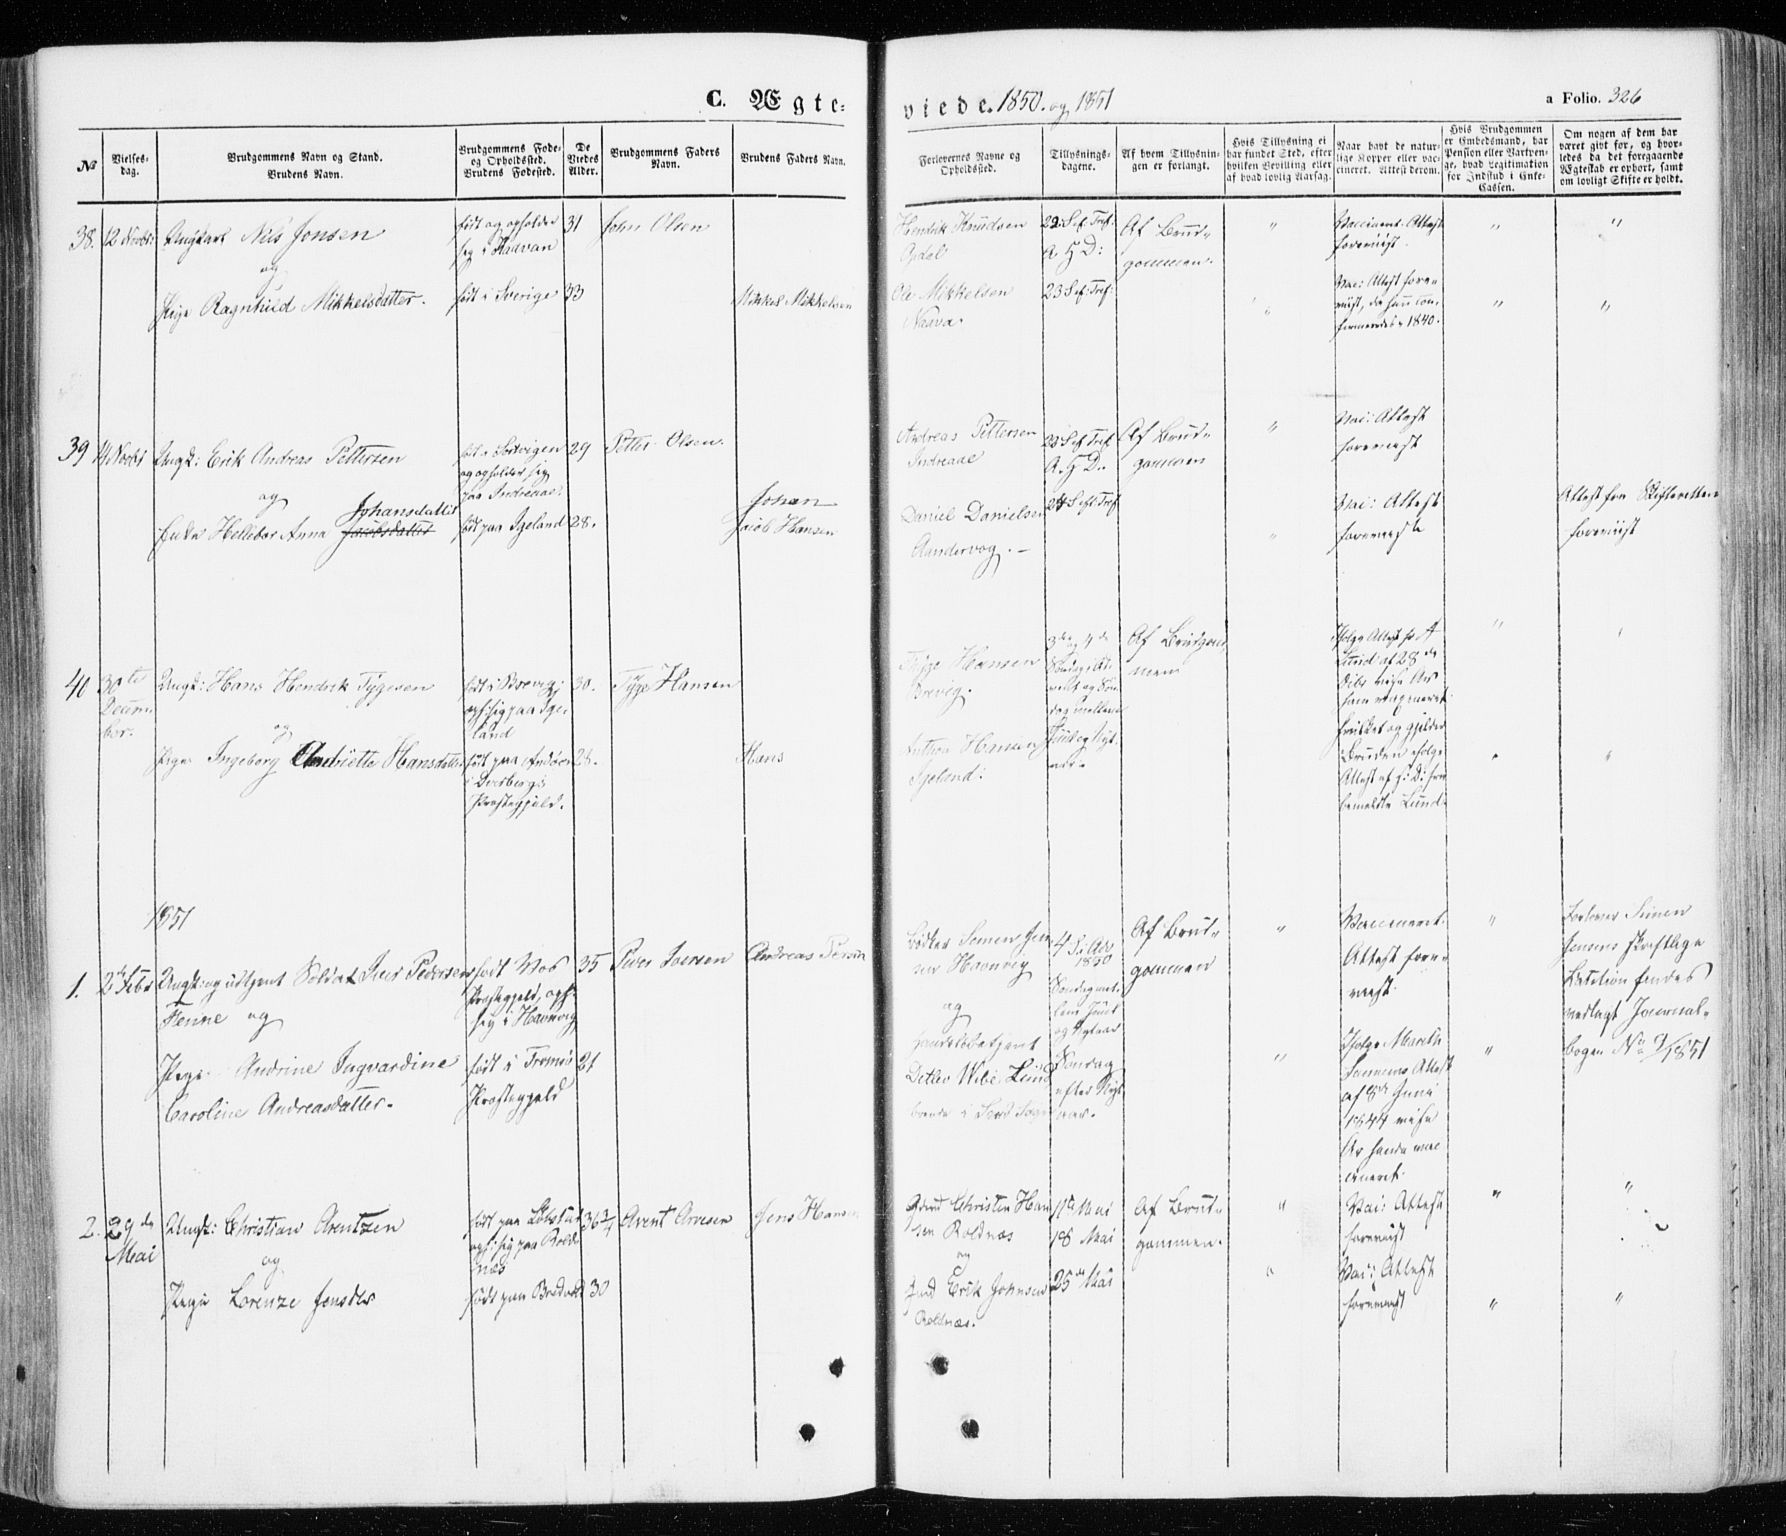 C. Ægte-
viede. 1850. og 1851
a Folio. 326
No
Vielses-
dag.
Brudgommens Navn og Stand.
Brudens Navn.
Brudgommens Føde-
og Opholdssted.
Brudens Fødested.
De
Viedes
Alder.
Brudgommens Faders
Navn.
Brudens Faders Navn.
Forlovernes Navne og
Opholdssted.
Tillysnings-
dagene.
Af hvem Tillysnin-
gen er forlangt.
Hvis Tillysning ei
har fundet Sted, efter
hvilken Bevilling eller
af hvad lovlig Aarsag.
Naar havt de natur-
lige Kopper eller vac-
cineret. Attest derom.
Hvis Brudgommen
er Embedsmand, har
Pension eller Vartpen-
ge, hvad Legitimation
for Indskud i Enke-
Cassen.
Om nogen af dem har
været gift før, og hvor-
ledes da det foregaaende
Ægteskab er ophørt, samt
om lovligt Skifte er holdt.
38. 12 Novbr
Ungkarl Nils Jonsen
og
Pige Ragnhild Mikkelsdatter.
født og opholder
sig i
født i Sverige
31
33
John Olsen
Mikkel Mikkelsen
Hendrik Knudsen
Ole Mikkelsen
22 S. ef. Tref.
23 S. ef. Tref:
Af Brud-
gommen.
Vaccinert. Attest
foreviist.
Vac: Attest fore-
viist, da hun con-
firmeredes 1840.
39 14 Novbr
Ungk: Erik Andreas Pettersen
og
Enke Hellebor Anna Johansdatter
Jacobsdatter
og opholder sig
paa Indreaae.
født paa Igeland
29
28.
Petter Olsen.
Johan
Jacob Hansen
Andreas Pettersen
Indreaae
Daniel Danielsen
Aandervog.
23 S. ef. Tref.
A. H D.
24 S. ef. Tref.
Af Brud-
gommen
Vac: Attest
foreviist
Vac: Attest
foreviist
Attest fra Skifteretten
foreviist
40 30te
Decem-
ber.
Ungk: Hans Hendrik Tygesen
og
Pige Ingeborg Andriette Hansdatter
født i Brevig;
oph: sig paa Ige-
land
født paa Andøen
i Dverbergs
Præstegjeld.
30.
Tyge Hansen
Hans
Tyge Hansen
Brevig.
Anthon Hansen
Igeland:
3de og 4de
Søndag i Ad-
vent og Søn-
dag mellem
Juul og Nyt-
aar.
Af Brudgom-
men
ifølge Attest fra
af 28de
Bruden ifølge
Attest af
bemeldte Lund.
1851
1. 2den Febr
Ungk: og udtjent Soldat Iver Pedersen
Fenne og
Pige Andrine Ingvardine
Caroline Andreasdatter.
født Vos
Præstegjeld, oph:
sig i Havnvig
født i Tromsø
Præstegjeld
35
21
Peder Iversen
Andreas
Bødker Simen Jen-
sen Havnvig
og
Handelsbetjent
Ditlev Wibe Lund
boende i
4 S. i Adv.
1850
Søndag mel-
lem Juul
og Nytaar
Søndag
efter Nyt-
aar.
Af Brud-
gommen
Vaccineret.
Attest fore-
viist.
ifølge
Attest
af 8de Juni
1844
Forlover Simen
Jensens skriftlige
findes
vedlagt Journal-
bogen No 9/1851
2. 29de
Mai
Ungk: Christian Arentzen
og
Pige Lorenze Jensdtr
født paa
oph: sig paa Rold-
næs
født paa Bredvik
36 3/4
30
Arent Arnesen
Jens Hansen
Christen Han-
sen Roldnæs
og
Erik Johnsen
Roldnæs.
11te Mai
18 Mai
25de Mai
Af Brud-
gommen.
Vac: Attest
foreviist
Vac: Attest
foreviist